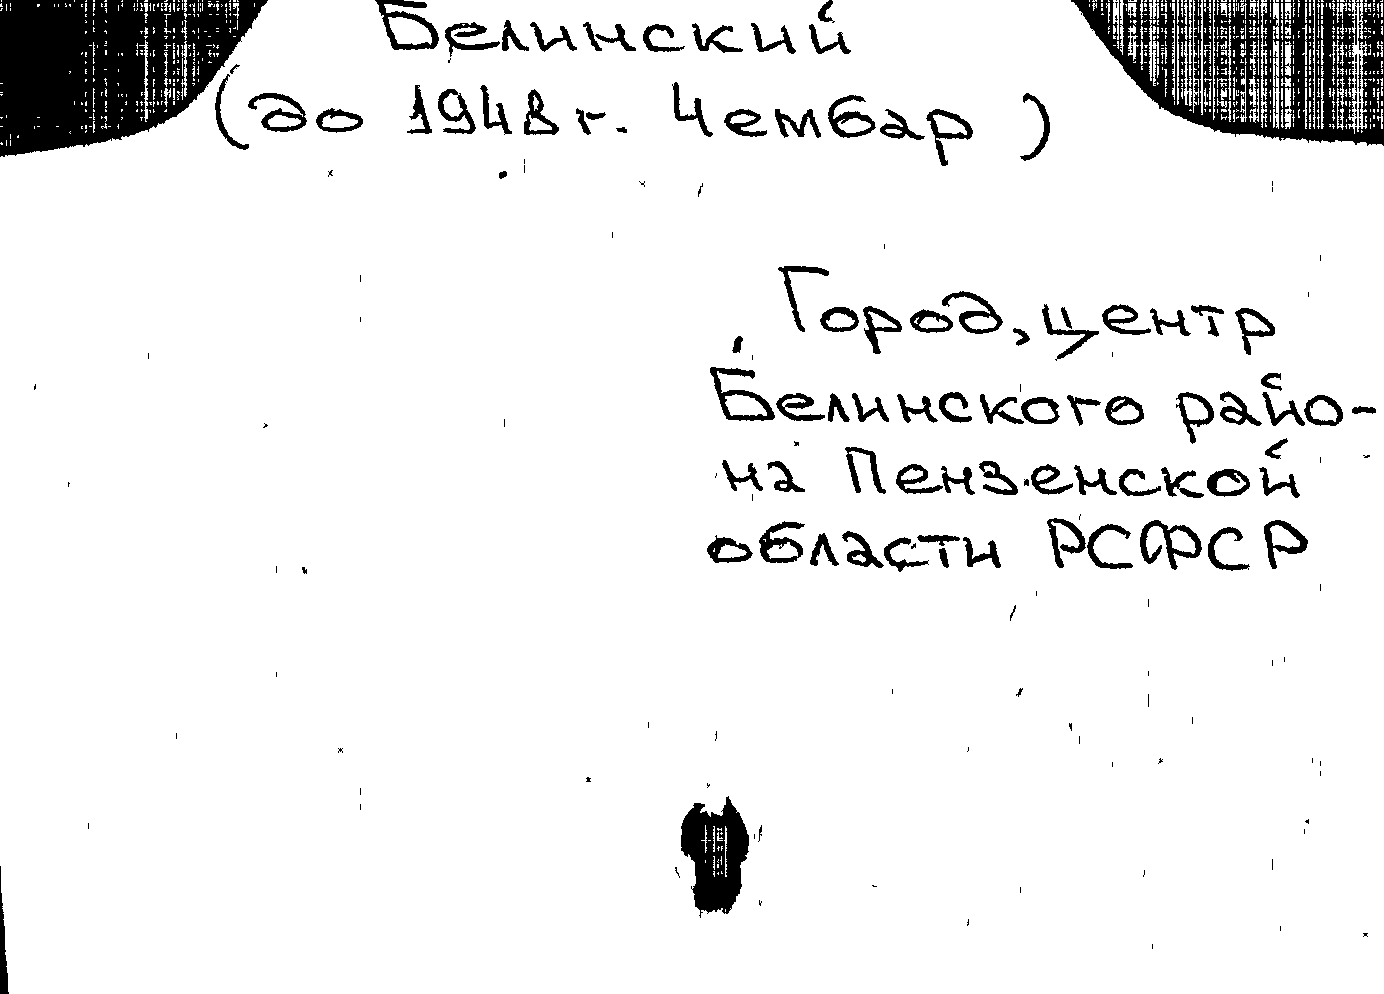 Белинский
(до 1948 г. Чембар)
Город, центр
Белинского райо-
на Пензенской
области РСФСР